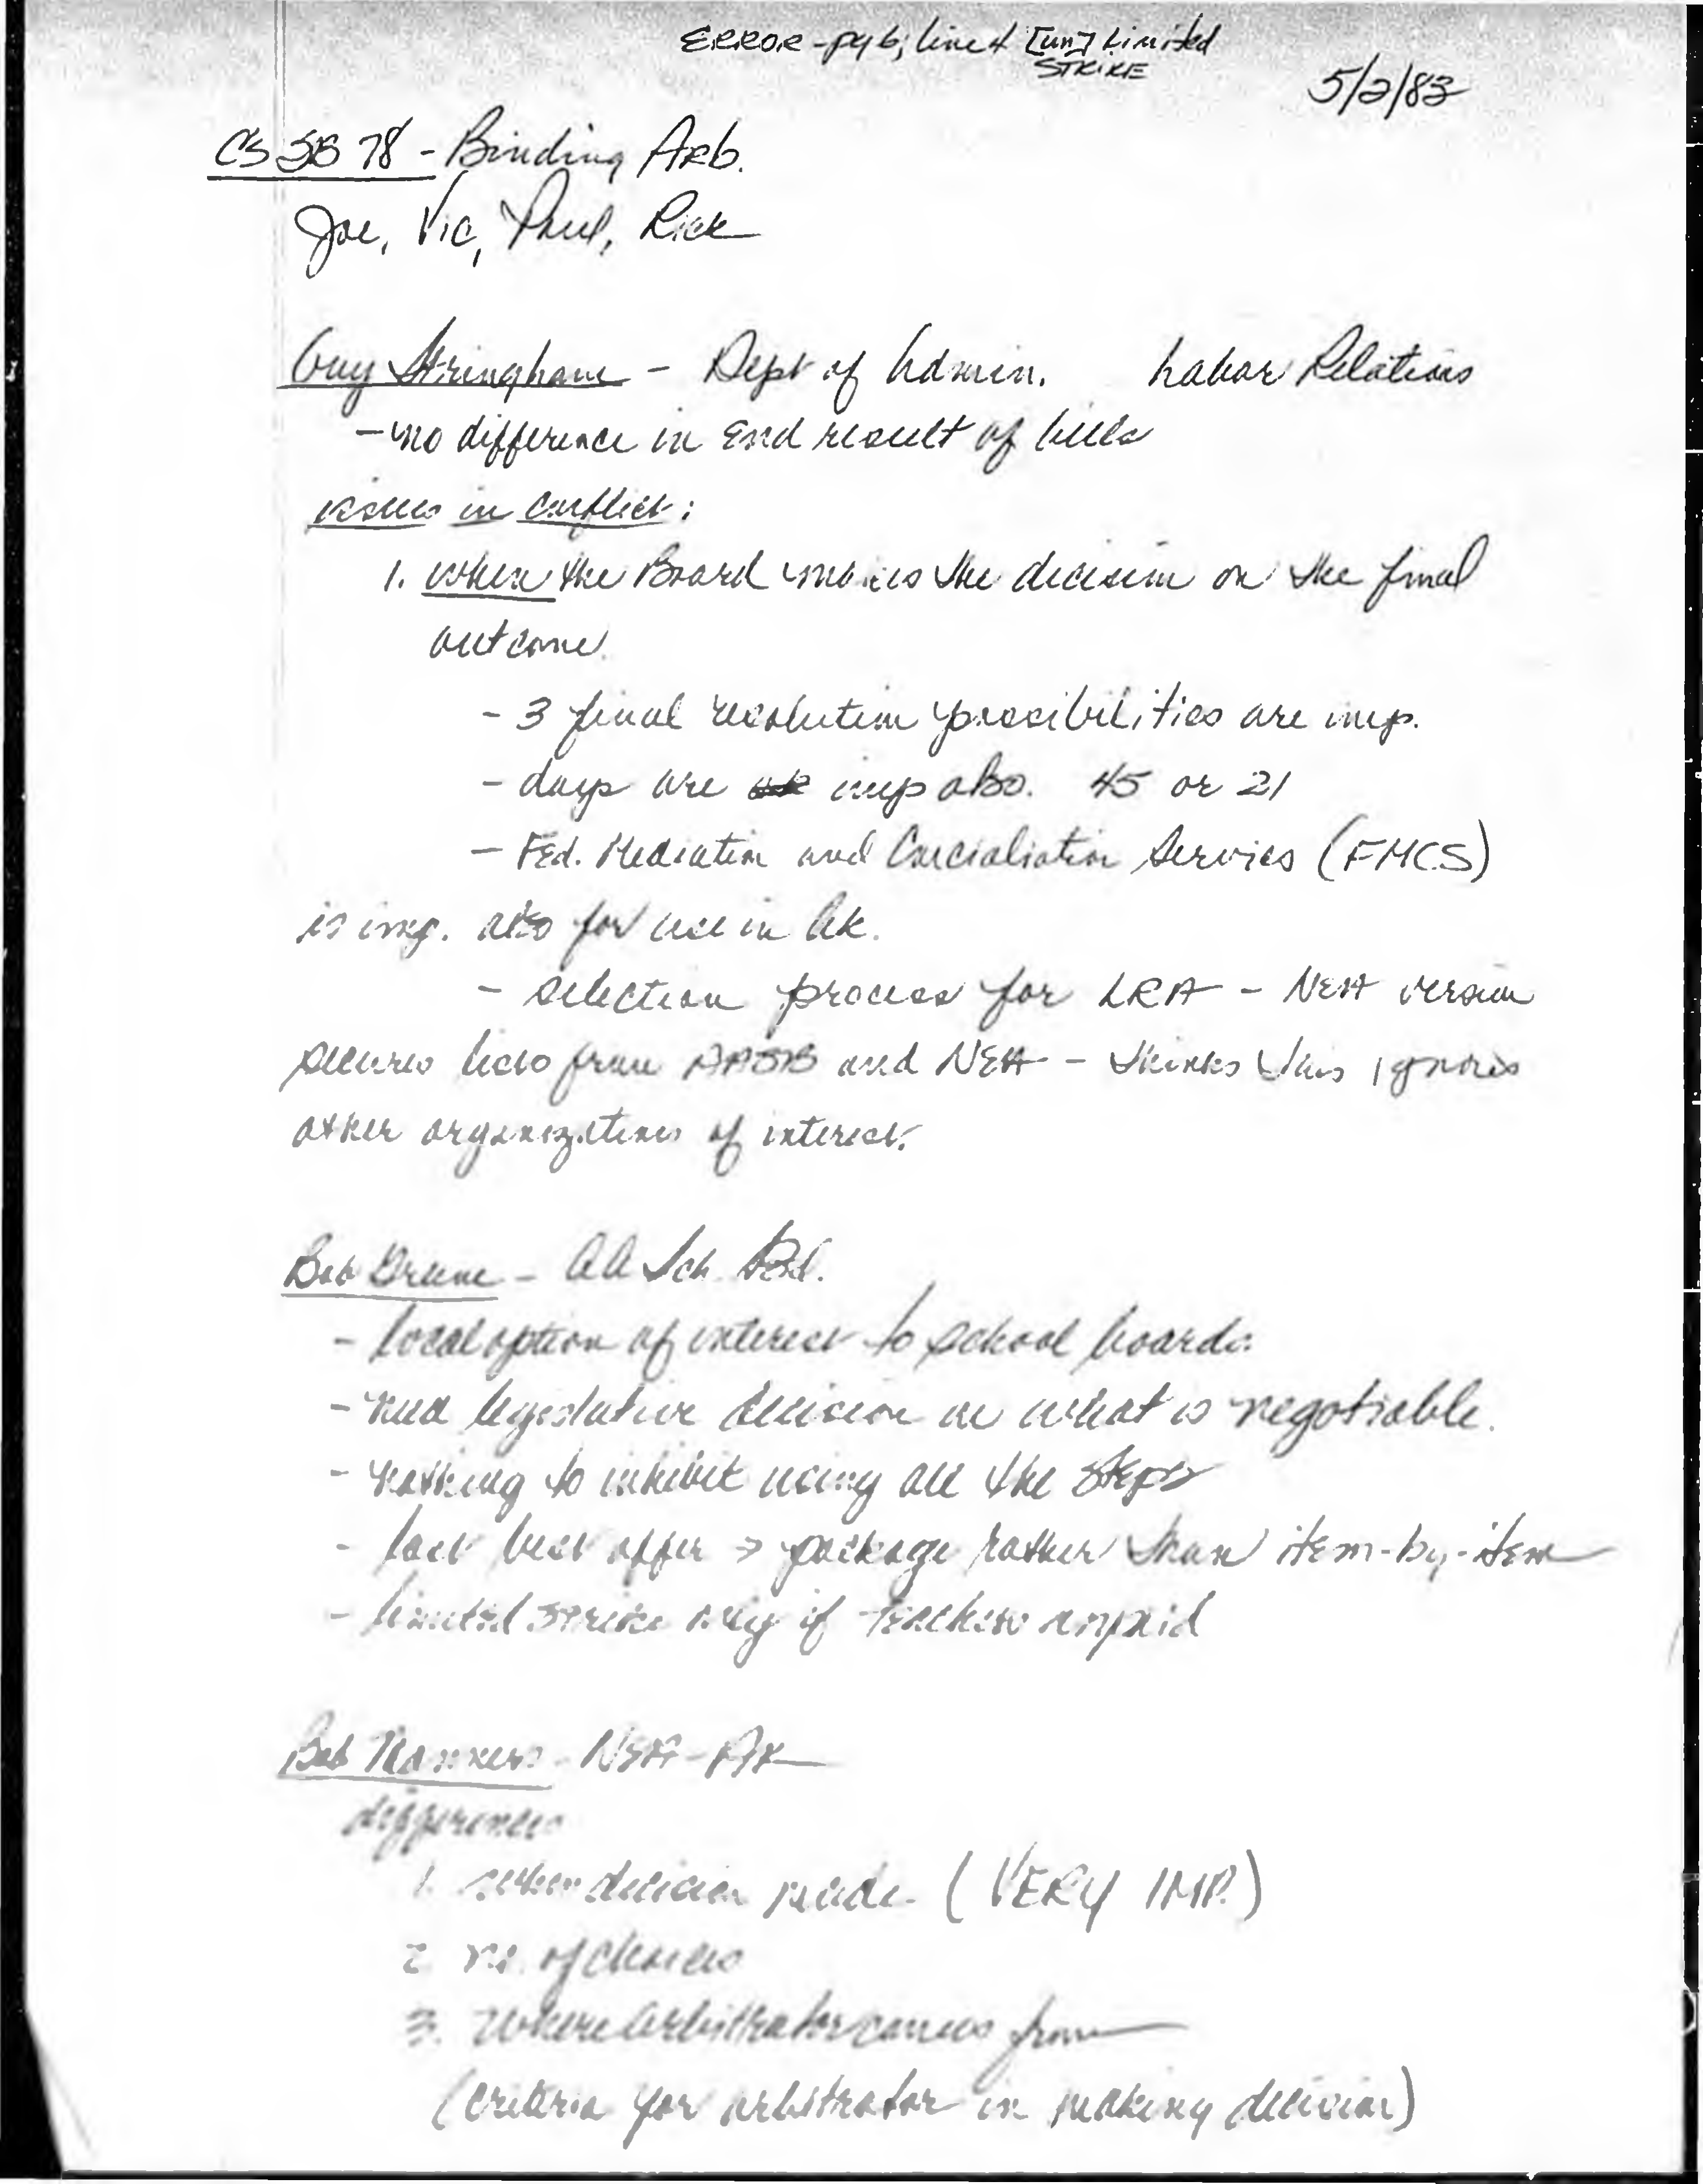 ERROR - pg 6, line 4 [un] Limited
STRIKE
5/2/83
CS SB 78 - Binding Arb.
Joe, Vic, Paul, Rick
Guy Stringham - Dept of Admin. Labor Relations
- no difference in End result of bills
issues in conflict:
1. when the Board makes the decision on the final
outcome.
- 3 final resolution possibilities are imp.
- days are imp also. 45 or 21
- Fed. Mediation and Concialiation Services (FMCS)
is imp. also for use in Ak.
- selection process for LRA - NEA version
secures lists from AASB and NEA - thinks this ignores
other organizations of interest.
Bob Greene - AA Sch. Bd.
- local option of interest to school boards.
- need legislative decision on what is negotiable.
- nothing to inhibit using all the steps
- last best offer → package rather than item-by-item
- limited strike only if teachers unpaid
Bob Manners - NEA-AK
differences
1. when decision made (VERY IMP.)
2. no. of choices
3. where arbitrator comes from
(criteria for arbitrator in making decision)